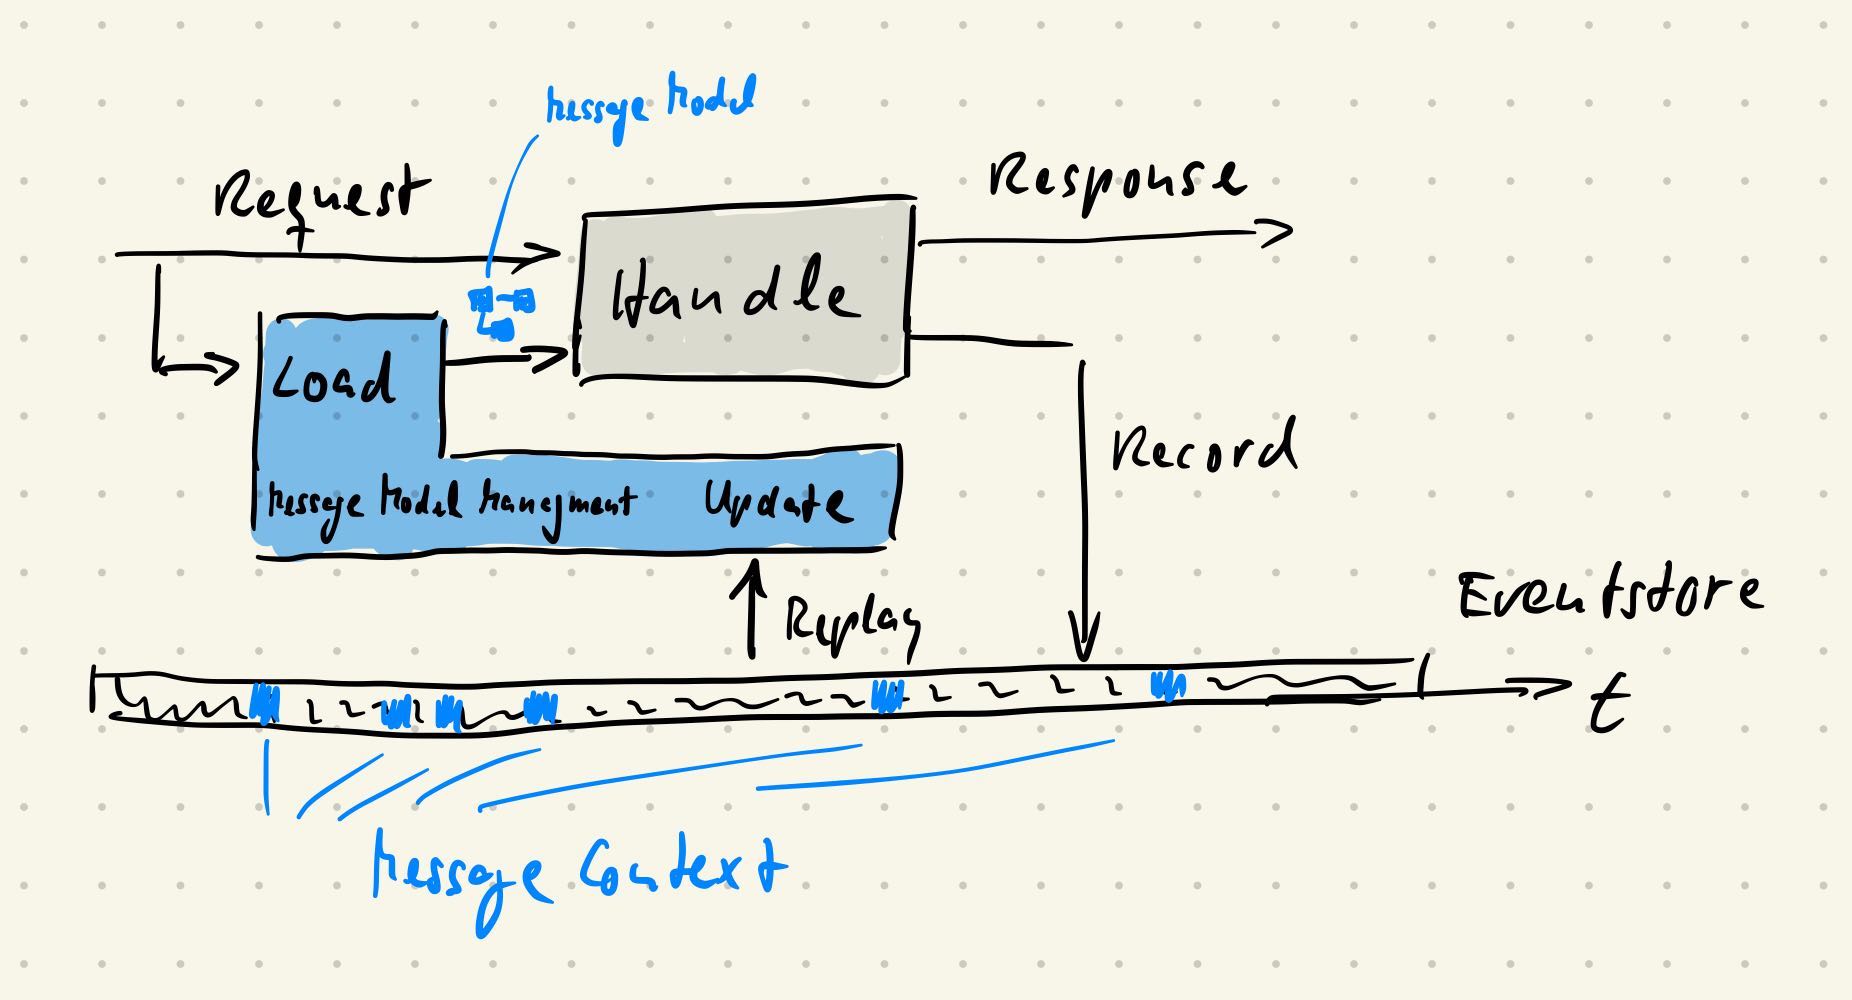 Message Model
Request
Response
Handle
Load
Record
Message Model Managment Update
Replay
Eventstore
t
Message Context